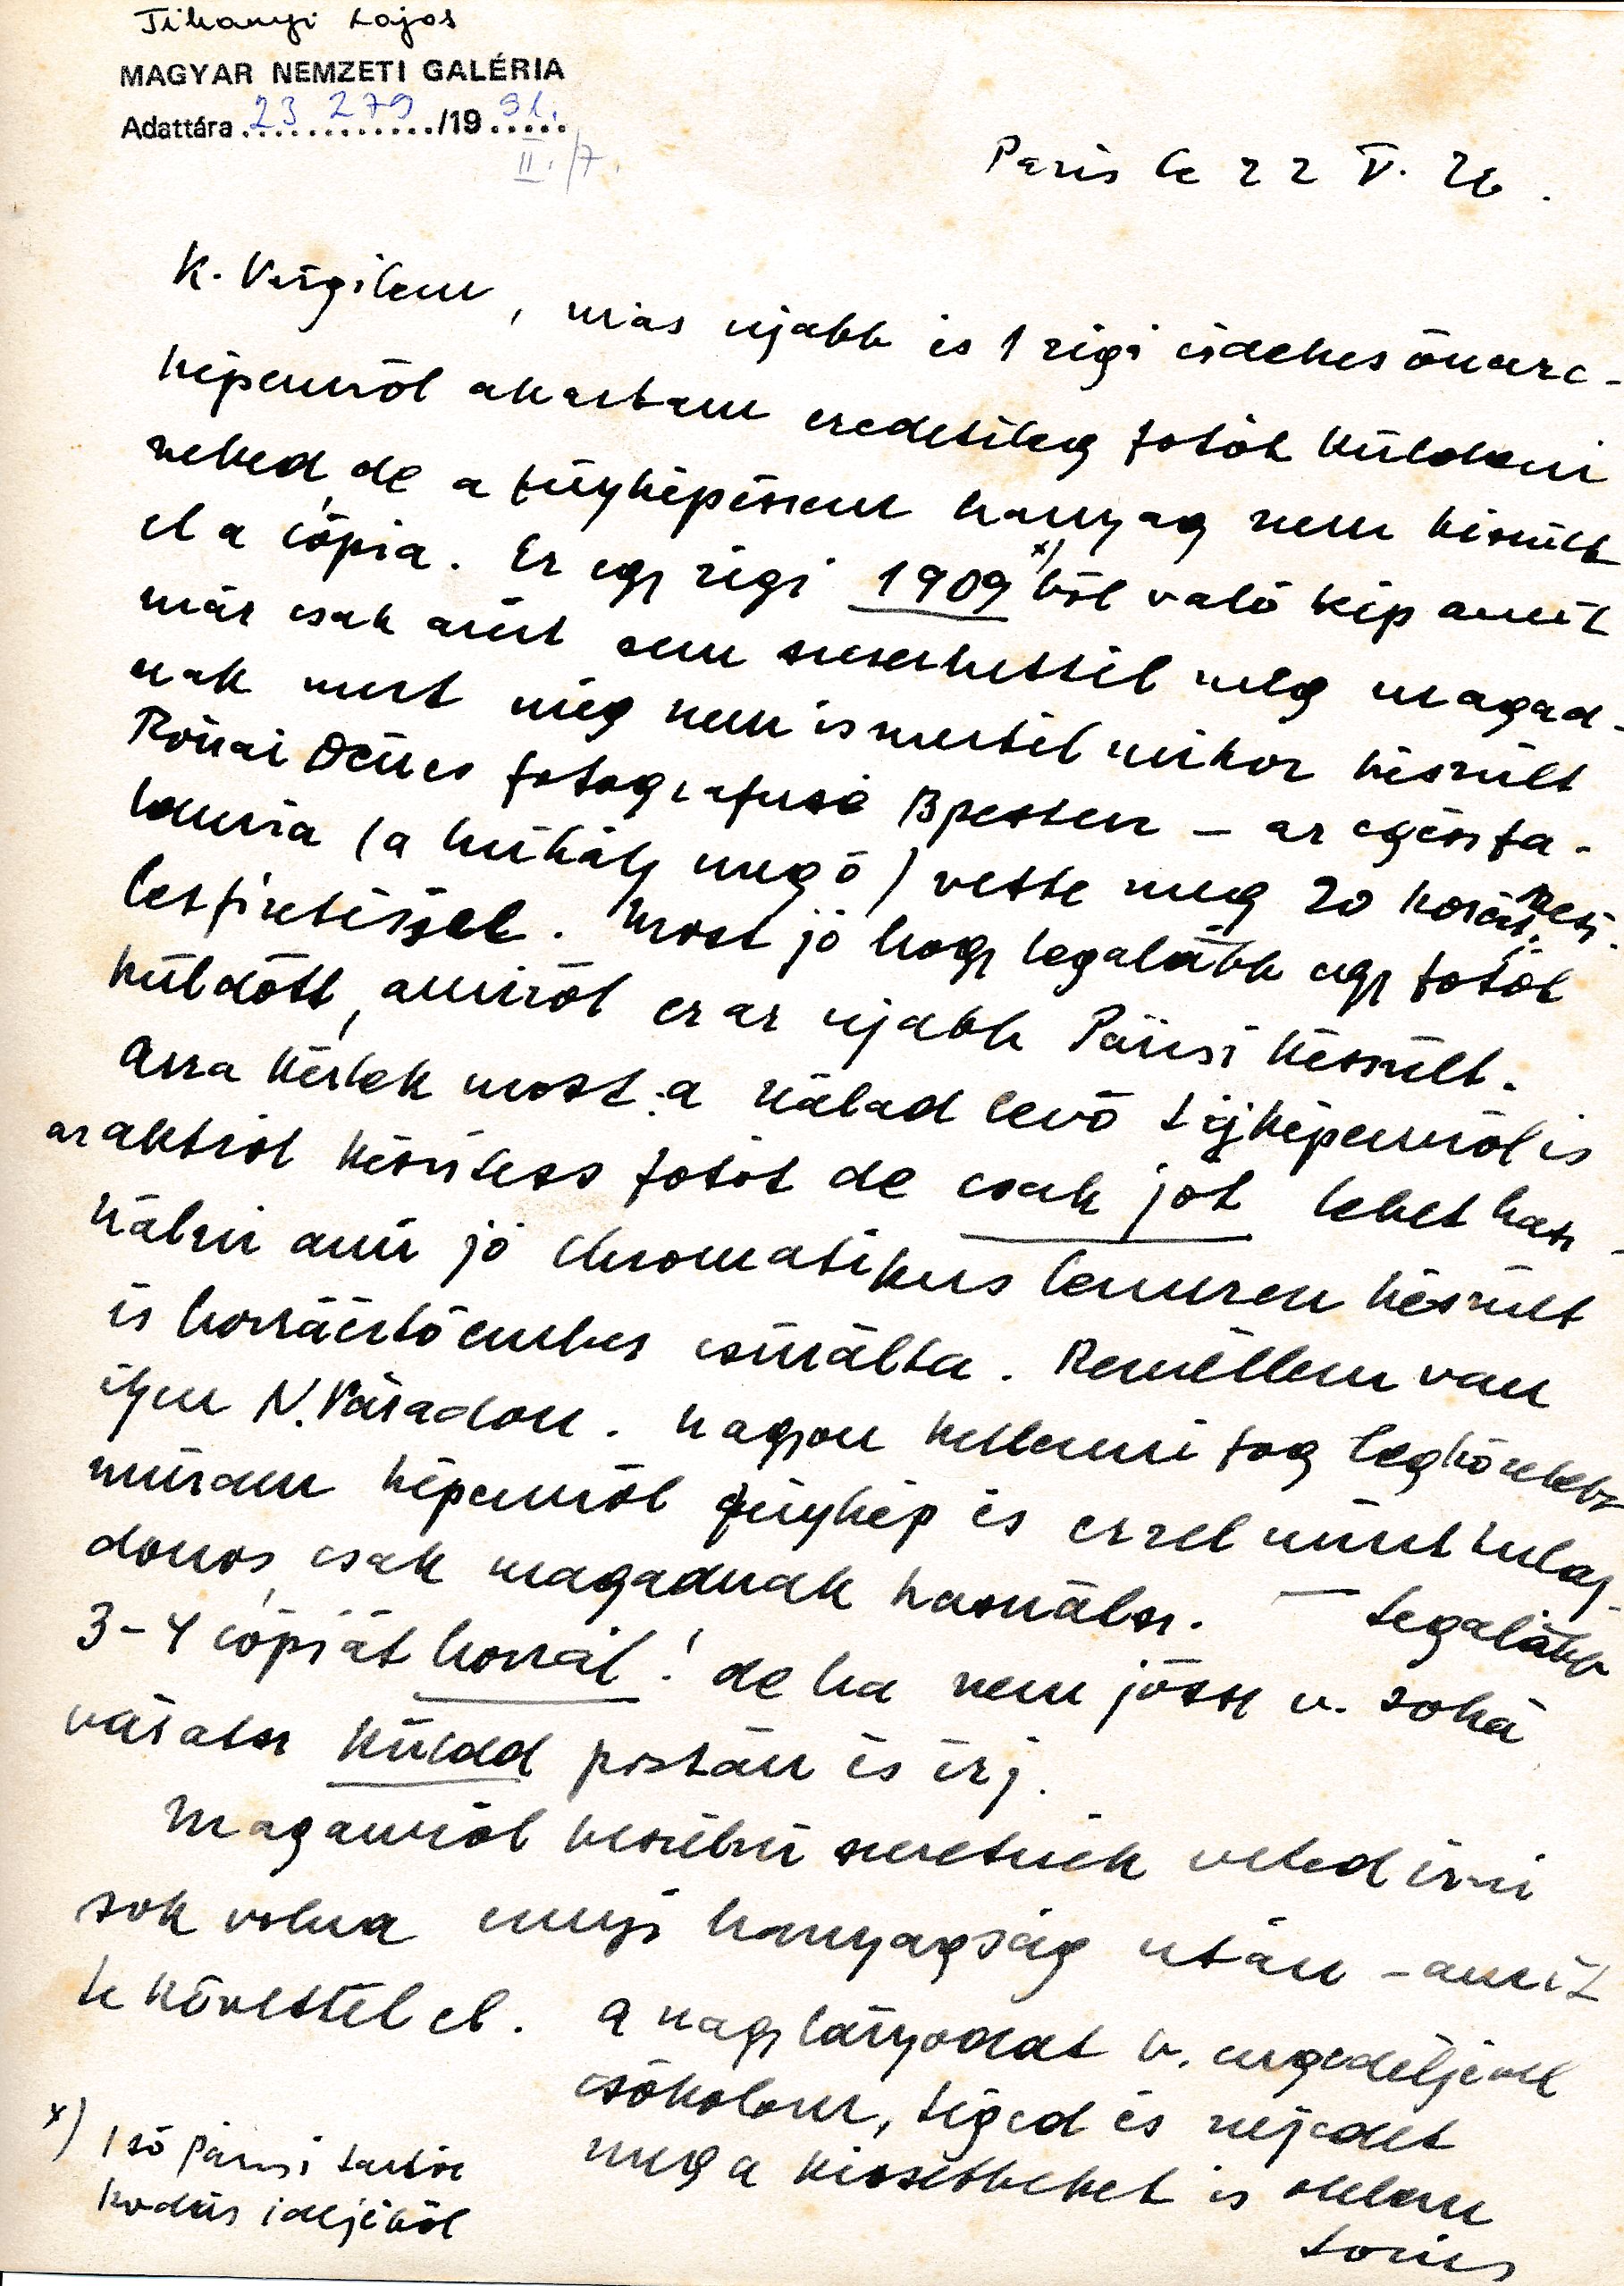 Tihanyi Lajos
MAGYAR NEMZETI GALÉRIA
Adattára 23 279 /19 91.
II./7.
Paris le 22 V. 26.
K. Virgilem, más ujabb és 1 régi érdekes önarc-
képemről akartam eredetileg fotót küldeni
neked, de a fényképészem hanyag nem készült
el a cópia. Ez egy régi 1909 x) ből való kép amit
már csak azért sem szerezhettél meg magad-
nak mert még nem ismertél mikor készült
Rónai Dénes fotografusé Bpesten – az egész fa-
milia (a műhely meg ő) vette meg 20 koronás
lefizetéssel. Most jó hogy legalább egy fotót
küldött, amiről ez az ujabb Párisi készült.
Arra kérlek most: a nálad levő tájképemről is
az aktról készítess fotót de csak jót lehet hasz-
nálni ami jó chromatikus lemezen készült
és hozzáértő ember csinálta. Remélem van
ilyen N.Váradon. Nagyon kelleni fog legközelebb
mindem képemről fénykép és ezzel mint tulaj-
donos, csak magadnak használsz. — Legalább
3-4 cópiát hozzál! de ha nem jössz v. soká
váratsz küldd postán és írj.
Magamról kesülni szeretnék neked írni
sok volna ennyi hanyagság után – amit
te követtél el. A nagylányodat b. engedéljével
csókolom, téged és nejedet
meg a kissebbeket is ölelem
Lojos
x) 1ső párisi tartóz
kodás idejéből